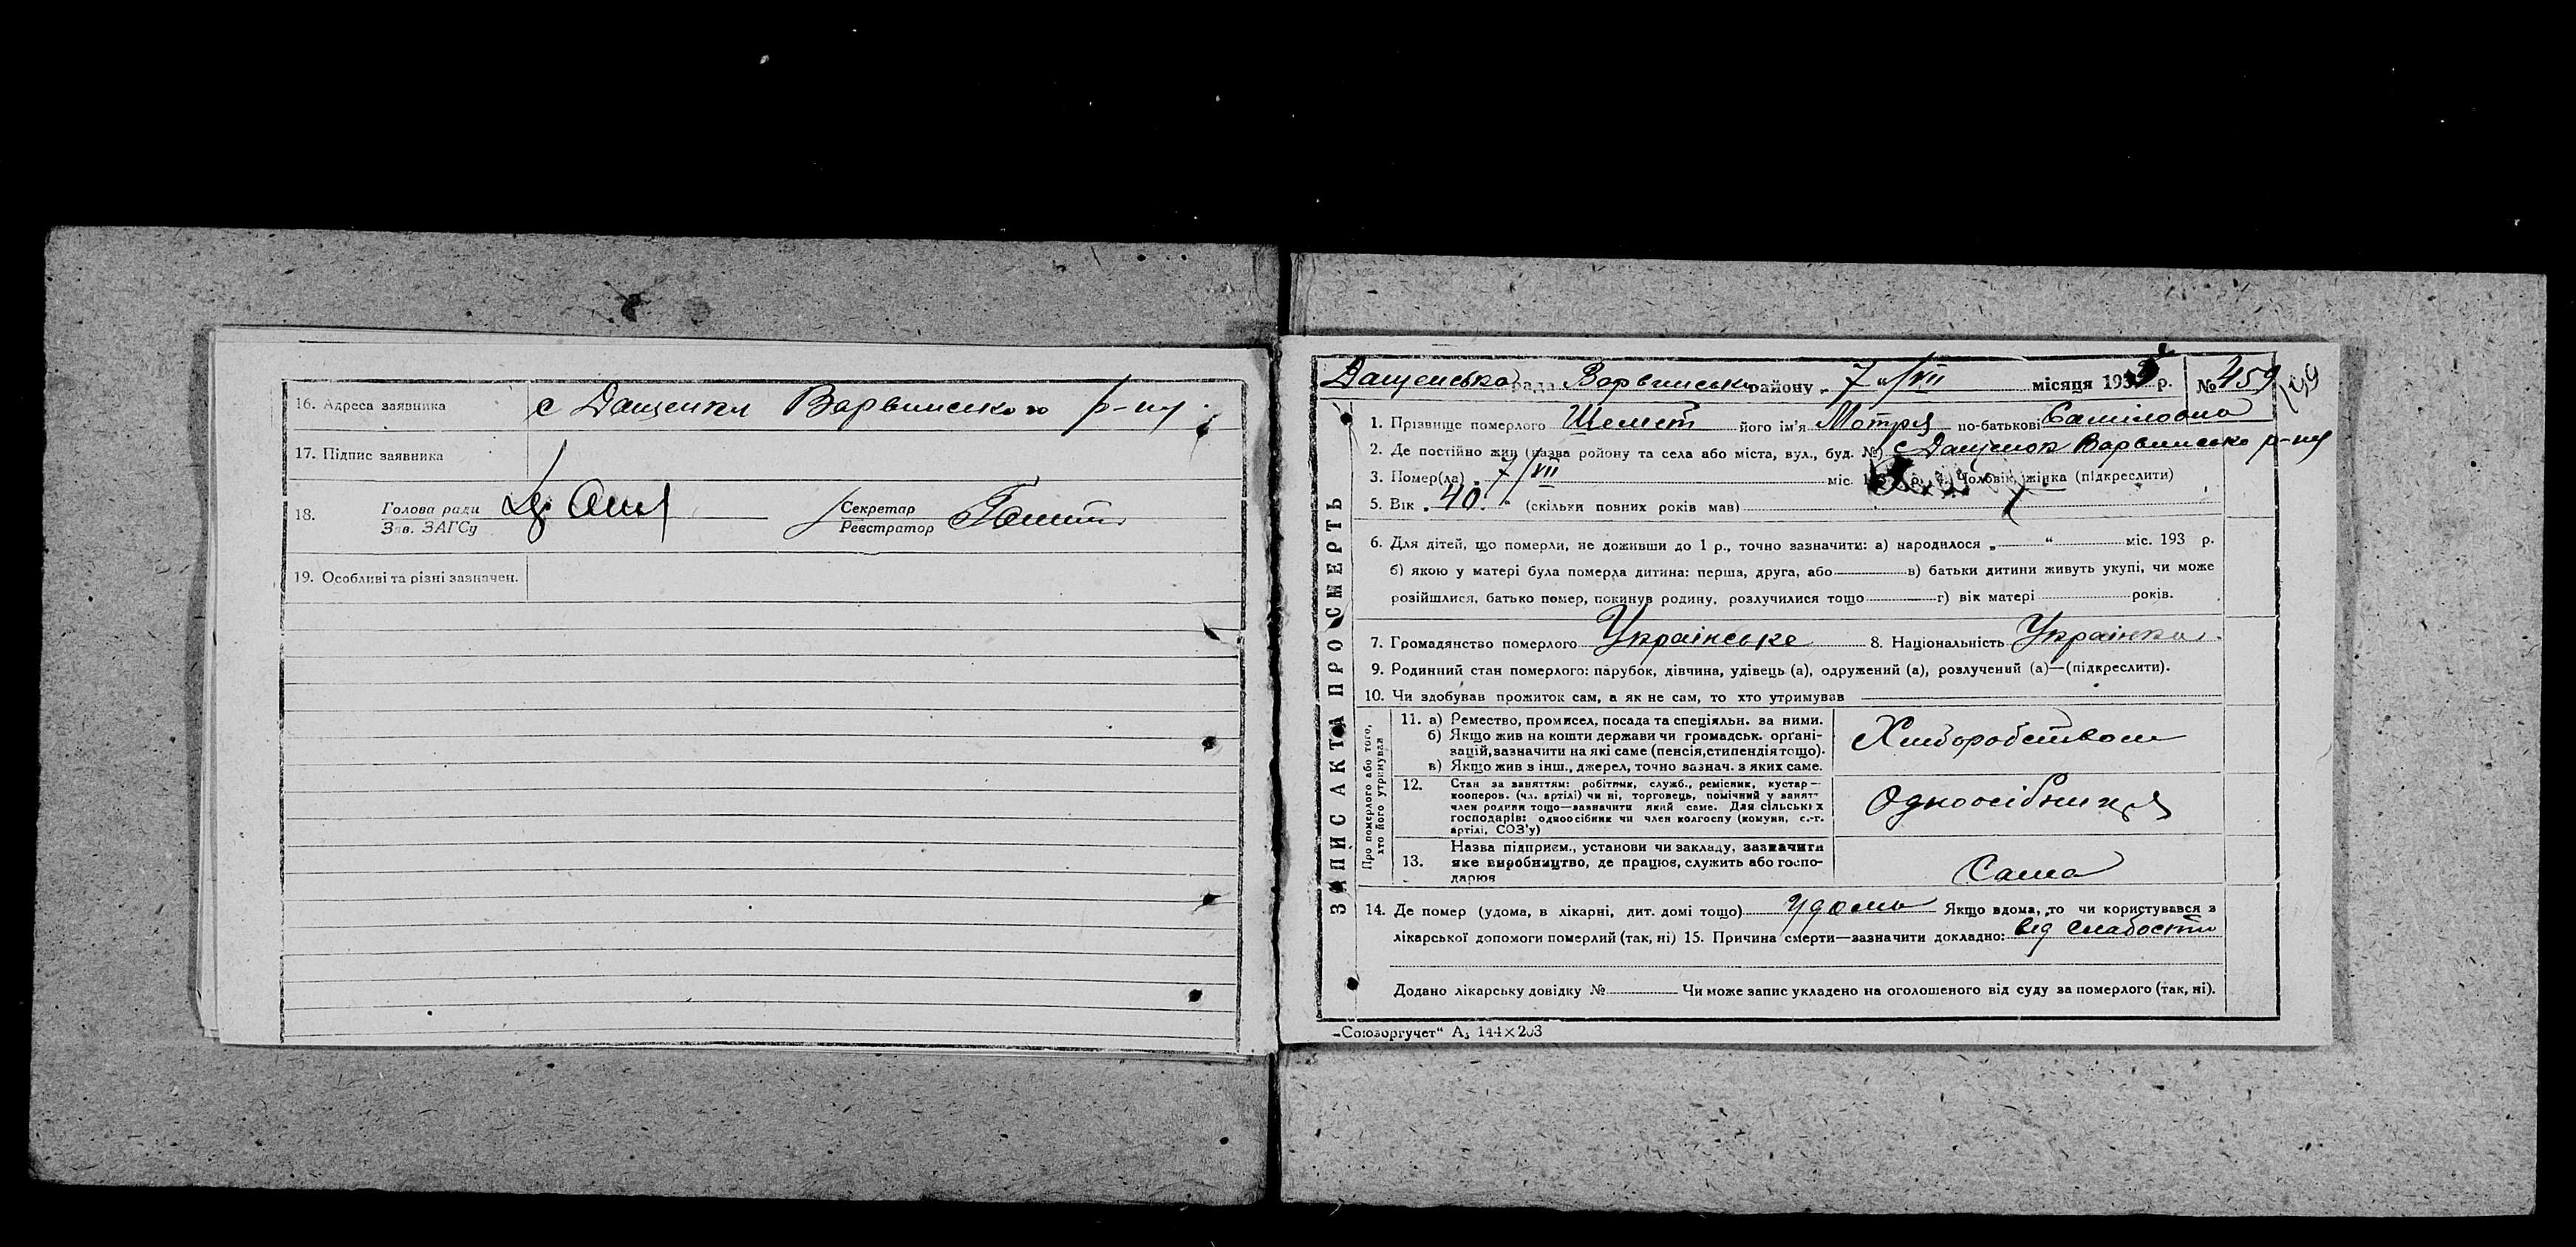 16. Адреса заявника с Дащенки Варвинського р-ну
17. Підпис заявника
18. Голова ради
Зав. ЗАГСу
Секретар
Реєстратор
19. Особливі та різні зазначен.
ЗАПИС АКТА ПРО СМЕРТЬ
Дащенська рада Варвинськ району „7“/VII місяця 193 р. № 459
159
1. Прізвище померлого Шемет його ім'я Мотря по-батькові
2. Де постійно жив (назва району та села або міста, вул., буд. №) с Дащенки Варвинсько р-ну
3. Помер(ла) 7/VII міс. р. 4. Чоловік, жінка (підкреслити)
5. Вік „40“ (скільки повних років мав)
6. Для дітей, що померли, не доживши до 1 р., точно зазначити: а) народилося „ “ міс. 193 р.
б) якою у матері була померла дитина: перша, друга, або в) батьки дитини живуть укупі, чи може
розійшлися, батько помер, покинув родину, розлучилися тощо г) вік матері років.
7. Громадянство померлого Українське 8. Національність Українка
9. Родинний стан померлого: парубок, дівчина, удівець (а), одружений (а), розлучений (а)—(підкреслити).
10. Чи здобував прожиток сам, а як не сам, то хто утримував
Про померлого або того,
хто його утримував
11. а) Ремество, промисел, посада та спеціяльн. за ними.
б) Якщо жив на кошти держави чи громадськ. органі-
зацій, зазначити на які саме (пенсія, стипендія тощо).
в) Якщо жив з інш., джерел, точно зазнач. з яких саме.
Хліборобством
12. Стан за заняттям: робітник, служб., ремісник, кустар—
кооперов. (чл. артілі) чи ні, торговець, помічний у занят-
член родини тощо—зазначити який саме. Для сільських
господарів: одноосібник чи член колгоспу (комуни, с.-г.
артілі, СОЗ'у)
Одноосібниця
13. Назва підприєм., установи чи закладу, зазначити
яке виробництво, де працює, служить або госпо-
дарює
Сама
14. Де помер (удома, в лікарні, дит. домі тощо) удома Якщо вдома, то чи користувався з
лікарської допомоги померлий (так, ні) 15. Причина смерти—зазначити докладно: від слабости
Додано лікарську довідку № Чи може запис укладено на оголошеного від суду за померлого (так, ні).
„Союзоргучет“ А₅ 144×203